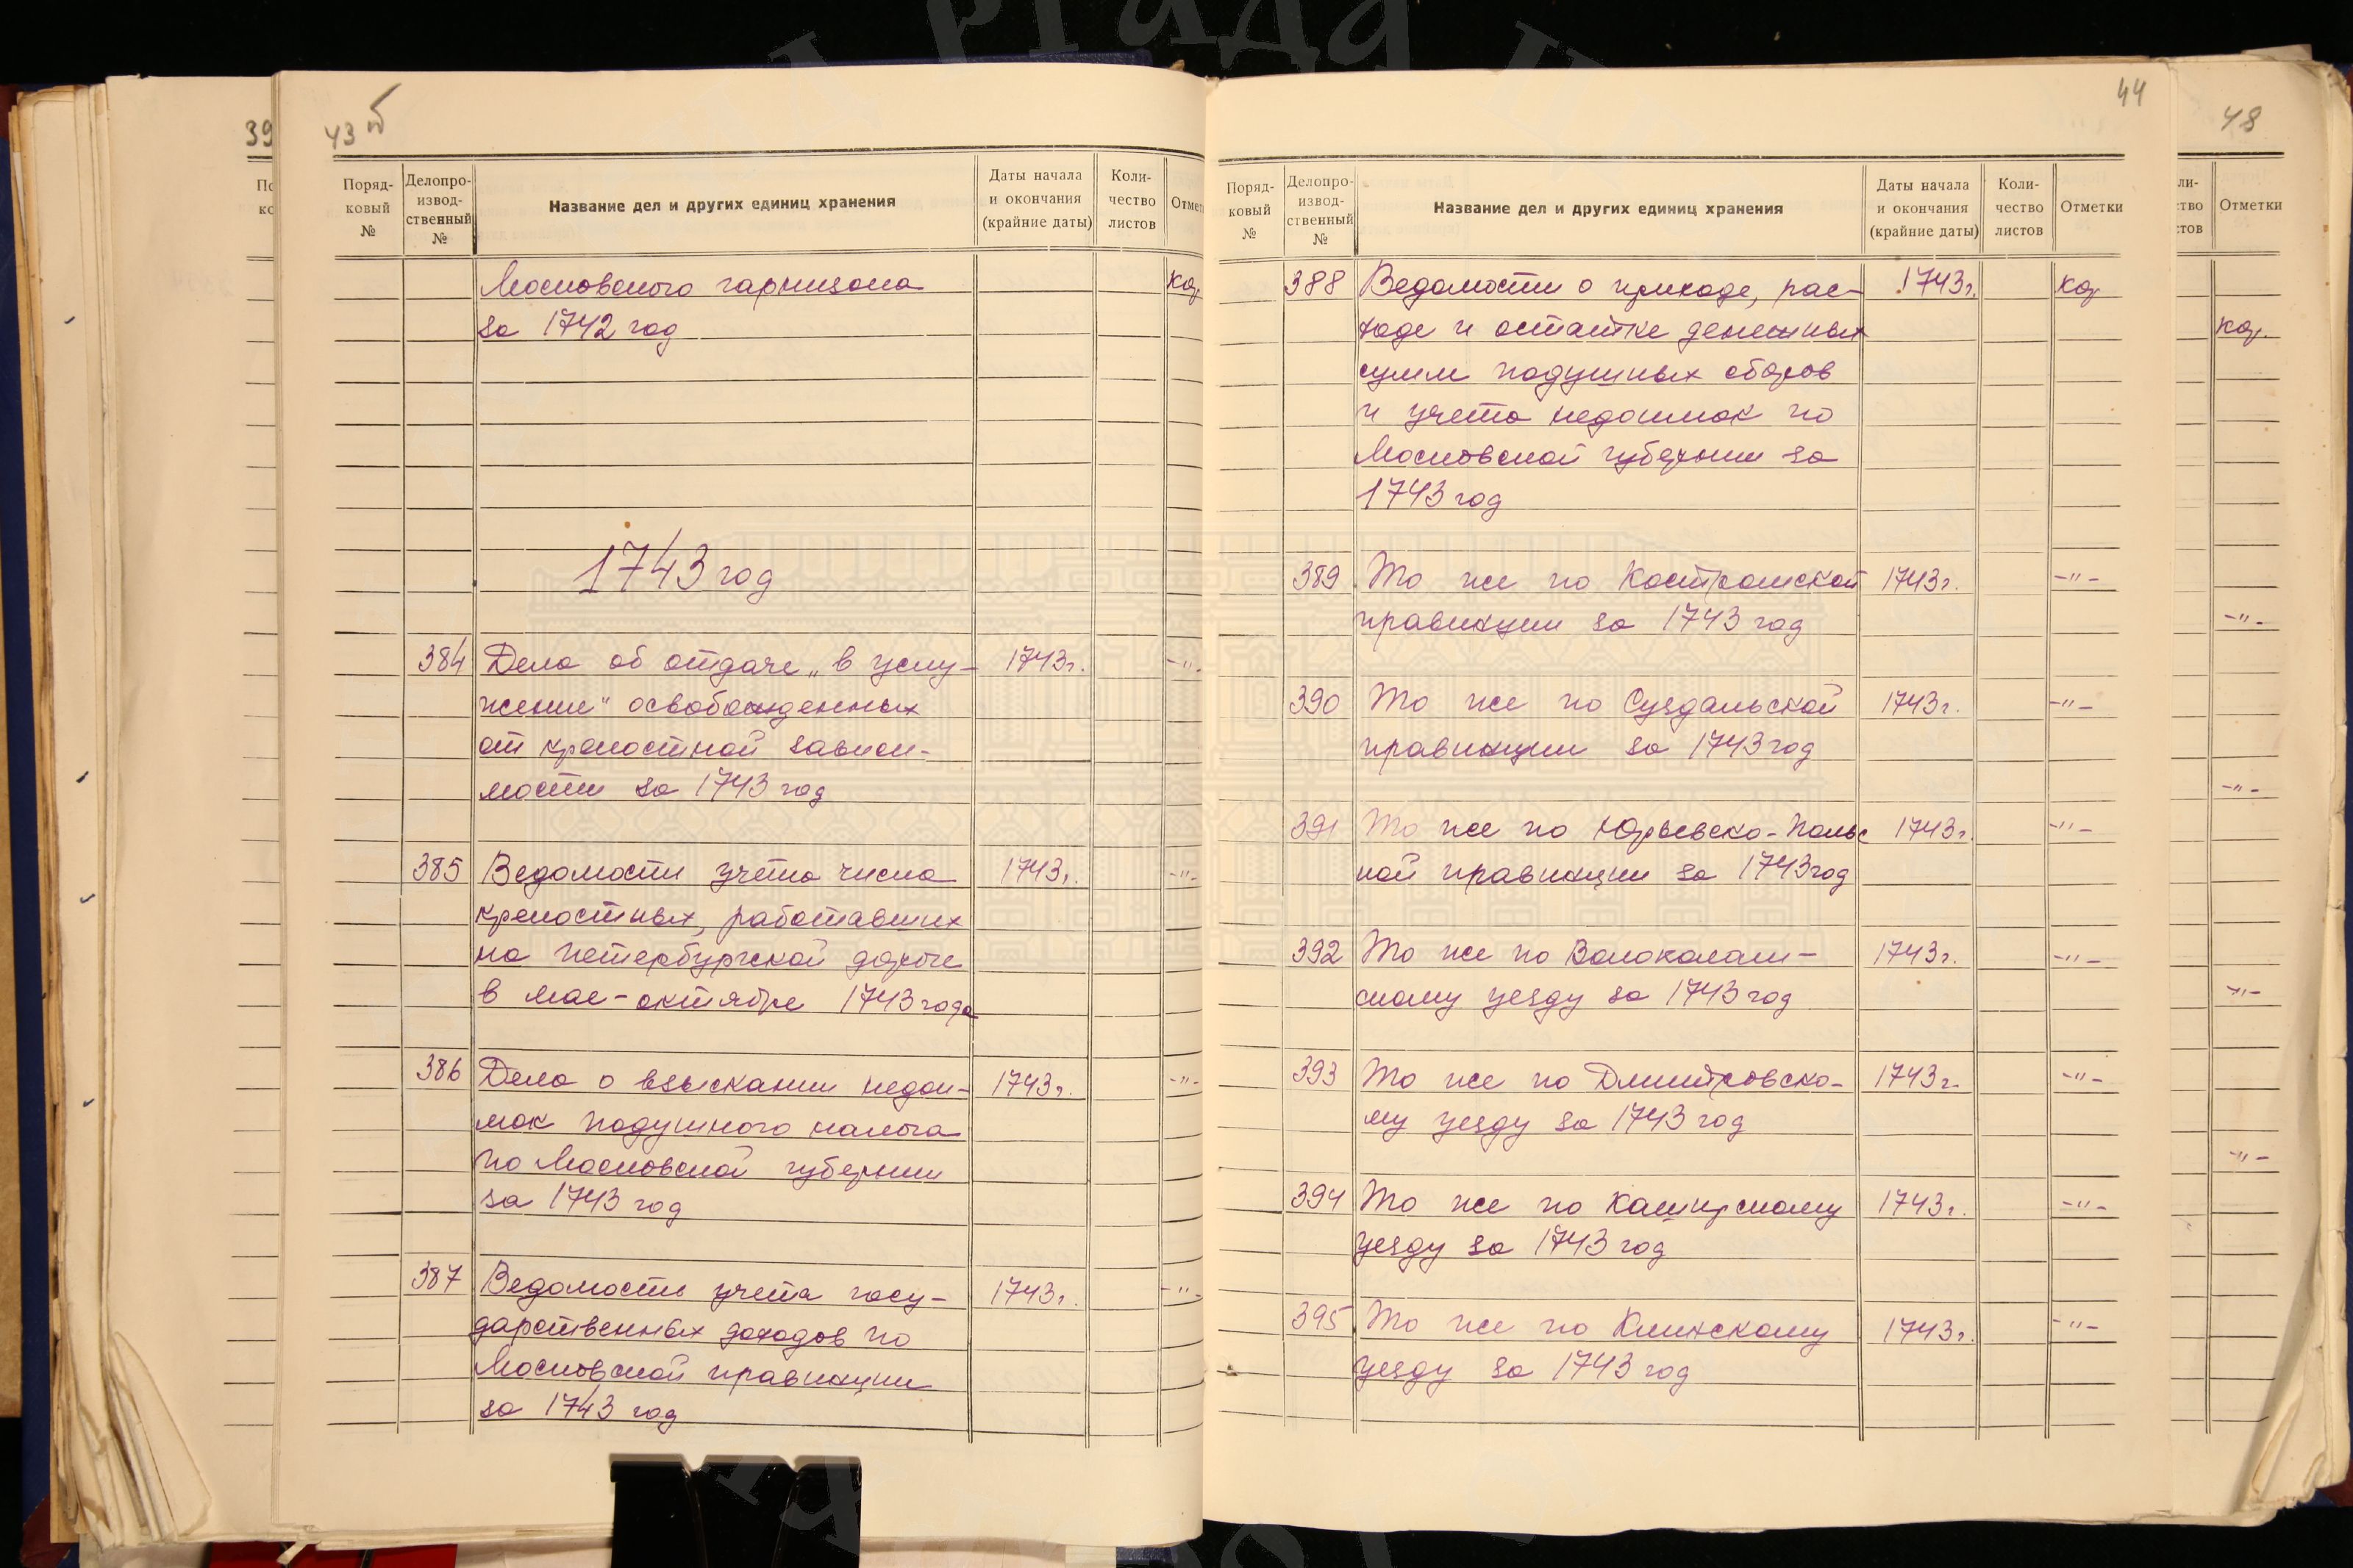 43 б
Поряд-
ковый
№
Делопро-
извод-
ственный
№
Название дел и других единиц хранения
Даты начала
и окончания
(крайние даты)
Коли-
чество
листов
Московского гарнизона
за 1742 год
1743 год
384 Дела об отдаче „в услу- 1743 г. -"-
жение" освобожденных
от крепостной зависи-
мости за 1743 год
385 Ведомости учета числа 1743 г. -"-
крепостных, работавших
на Петербургской дороге
в мае-октябре 1743 года
386 Дела о взыскании недои- 1743 г. -"-
мок подушного налога
по Московской губернии
за 1743 год
387 Ведомость учета госу- 1743 г. -"-
дарственных доходов по
Московской провинции
за 1743 год
44
Поряд-
ковый
№
Делопро-
извод-
ственный
№
Название дел и других единиц хранения
Даты начала
и окончания
(крайние даты)
Коли-
чество
листов
Отметки
388 Ведомости о приходе, рас- 1743 г.
ходе и остатке денежных
сумм подушных сборов
и учета недоимок по
Московской губернии за
1743 год
389 То же по Костромской 1743 г. -"-
провинции за 1743 год
390 То же по Суздальской 1743 г. -"-
провинции за 1743 год
391 То же по Юрьевско-Польс 1743 г. -"-
кой провинции за 1743 год
392 То же по Волоколам- 1743 г. -"-
скому уезду за 1743 год
393 То же по Дмитровско- 1743 г. -"-
му уезду за 1743 год
394 То же по Каширскому 1743 г. -"-
уезду за 1743 год
395 То же по Клинскому 1743 г. -"-
уезду за 1743 год
48
Отметки
39